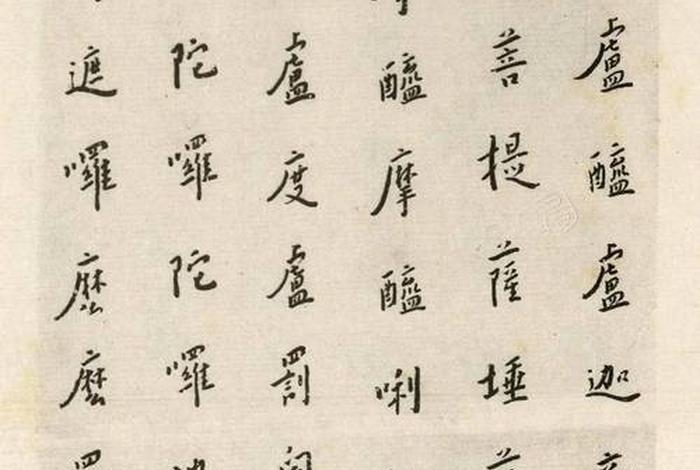 盧醯盧迦
菩提薩埵
醯摩醯唎
盧度盧罰
陀囉陀囉
遮囉麼麼